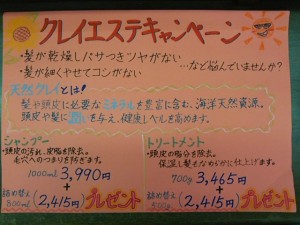 クレイエステキャンペーン
・髪が乾燥しパサつきツヤがない
・髪が細くやせてコシがない
…など悩んでいませんか?
天然クレイとは!
髪や頭皮に必要なミネラルを豊富に含む、海洋天然資源。
頭皮や髪に潤いを与え、健康レベルを高めます。
シャンプー
・頭皮の汚れ、皮脂を除去。
毛穴へのつまりを防ぎます。
1000ml 3,990円
+
詰め替え
800ml
(2,415円)プレゼント
トリートメント
・頭皮の脂分を除去。
保湿し髪もなめらかに仕上げます。
700g 3,465円
+
詰め替え
(2,415円)プレゼント